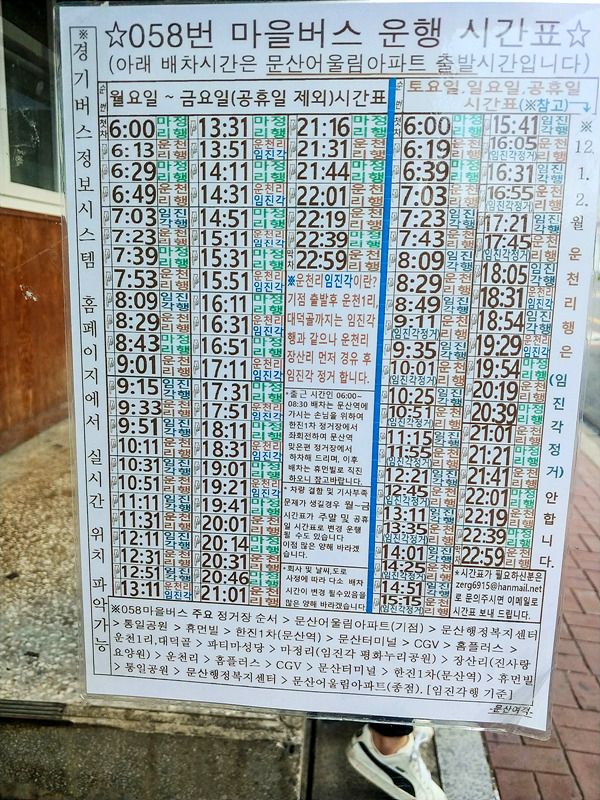 ☆058번 마을버스 운행 시간표☆
(아래 배차시간은 문산어울림아파트 출발시간입니다)
※경기버스정보시스템 홈페이지에서 실시간 위치 파악가능
순번 월요일 ~ 금요일(공휴일 제외)시간표
첫차 6:00 마정리행
6:13 운천리행
6:29 마정리행
6:49 운천리행
7:03 임진각행
7:23 운천리행
7:39 마정리행
7:53 운천리행
8:09 임진각행
8:29 운천리행
8:43 마정리행
9:01 운천리행
9:15 임진각행
9:33 운천리행
9:51 임진각행
10:11 운천리행
10:31 임진각행
10:51 운천리행
11:11 마정리행
11:31 운천리행
12:11 마정리행
12:31 운천리행
12:51 임진각행
13:11 운천리행
13:31 마정리행
13:51 운천리 임진각
14:11 마정리행
14:31 운천리 임진각
14:51 마정리행
15:11 운천리 임진각
15:31 마정리행
15:51 운천리 임진각
16:11 마정리행
16:31 운천리 임진각
16:51 마정리행
17:11 운천리 임진각
17:31 마정리행
17:51 운천리 임진각
18:11 마정리행
18:31 운천리
19:01 마정리행
19:21 운천리
19:41 마정리행
20:01 운천리행
20:14 마정리행
20:31 운천리행
20:46 마정리행
21:01 운천리행
21:16 마정리행
21:31 운천리행
21:44 마정리행
22:01 운천리행
22:19 마정리행
22:39 마정리행
막차 22:59 운천리행
※운천리임진각이란?
기점 출발후 운천1리,
대덕골까지는 임진각
행과 같으나 운천리
장산리 먼저 경유 후
임진각 정거 합니다.
*출근 시간인 06:00~
08:30 배차는 문산역에
가시는 손님을 위하여
한진1차 정거장에서
좌회전하며 문산역
맞은편 정거장에서
하차해 드리며, 이후
배차는 휴먼빌로 직진
하오니 참고바랍니다.
* 차량 결함 및 기사부족
문제가 생길경우 월~금
시간표가 주말 및 공휴
일 시간표로 변경 운행
될 수도 있습니다
이점 많은 양해 바라겠
습니다.
*회사 및 날씨,도로
사정에 따라 다소 배차
시간이 변경 될수있음을
많은 양해 바라겠습니다
순번 토요일,일요일,공휴일
시간표(※참고)
첫차 6:00 마정리행
6:19 운천리행
6:39 마정리행
7:03 운천리행
7:23 임진각행
7:43 운천리행
8:09 임진각행
8:29 운천리행
8:49 임진각행
9:11 운천리행 (임진각정거)
9:35 임진각행
10:01 운천리행 (임진각정거)
10:25 임진각행
10:51 운천리행 (임진각정거)
11:15 임진각행
11:55 운천리행 (임진각정거)
12:21 임진각행
12:45 운천리행 (임진각정거)
13:11 임진각행
13:35 운천리행 (임진각정거)
14:01 임진각행
14:25 운천리행 (임진각정거)
14:51 임진각행
15:15 운천리행 (임진각정거)
15:41 임진각행
16:05 운천리행 (임진각정거)
16:31 임진각행
16:55 운천리행 (임진각정거)
17:21 임진각행
17:45 운천리행 (임진각정거)
18:05 임진각행
18:31 운천리행
18:54 임진각행
19:29 운천리행
19:54 마정리행
20:19 운천리행
20:39 마정리행
21:01 운천리행
21:21 마정리행
21:41 운천리행
22:01 마정리행
22:19 운천리행
22:39 마정리행
막차 22:59 운천리행
*시간표가 필요하신분은
zerg6915@hanmail.net
로 문의주시면 이메일로
시간표 보내 드립니다.
※12.1.2.월 운천리행은 (임진각정거) 안합니다.
※058마을버스 주요 정거장 순서 > 문산어울림아파트(기점) > 문산행정복지센터
>통일공원 > 휴먼빌 > 한진1차(문산역) > 문산터미널 > CGV > 홈플러스 >
운천1리,대덕골 > 파티마성당 > 마정리(임진각 평화누리공원) > 장산리(진사랑
요양원) > 운천리 > 홈플러스 > CGV > 문산터미널 > 한진1차(문산역) > 휴먼빌
>통일공원 > 문산행정복지센터 > 문산어울림아파트(종점). [임진각행 기준]
-문산여객-